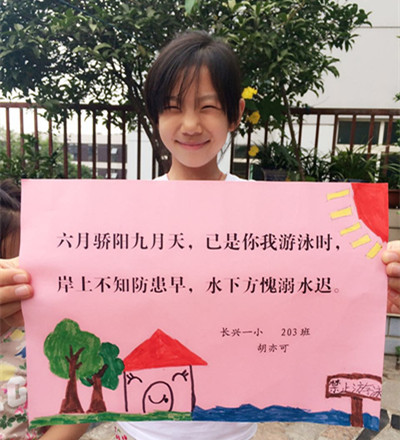 六月骄阳九月天，已是你我游泳时，
岸上不知防患早，水下方愧溺水迟。
长兴一小 203 班
胡亦可
禁止游泳